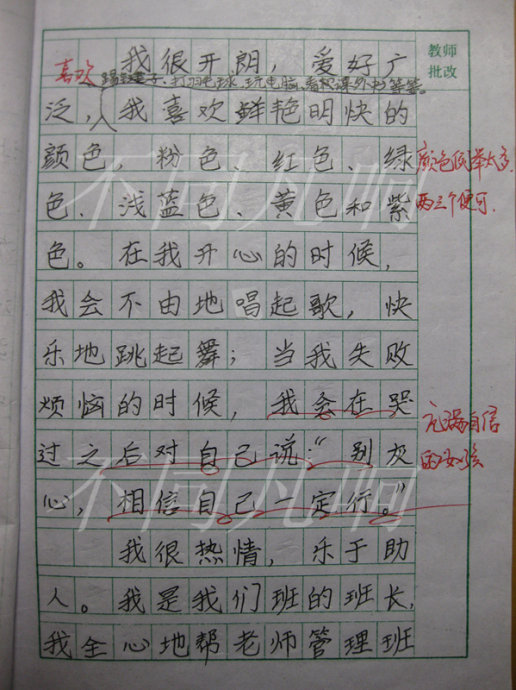 我很开朗，爱好广
教师
批改
喜欢
踢毽子、打羽毛球、玩电脑、看课外书等等。
泛，我喜欢鲜艳明快的
颜色，粉色、红色、绿
颜色例举太多，
色、浅蓝色、黄色和紫
两三个便可。
色。在我开心的时候，
我会不由地唱起歌，快
乐地跳起舞；当我失败
烦恼的时候，我会在哭
充满自信
过之后对自己说：“别灰
的女孩
心，相信自己一定行。”
我很热情，乐于助
人。我是我们班的班长，
我全心地帮老师管理班
不同凡响
不同凡响